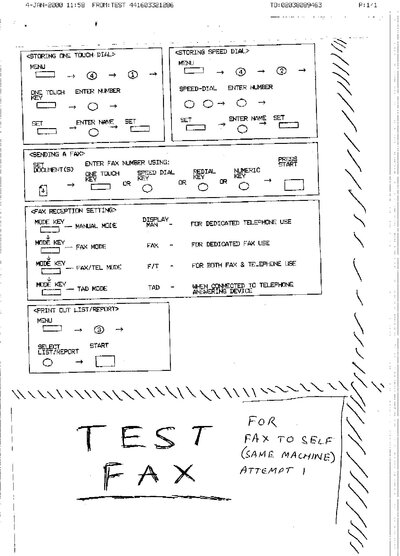 4-JAN-2000 11:58 FROM:TEST 441603321206 TO:02030289463 P:1/1
<STORING ONE TOUCH DIAL>
MENU
→ 4 → 1 →
ONE TOUCH KEY ENTER NUMBER
→
SET ENTER NAME SET
→
<STORING SPEED DIAL>
MENU
→ 4 → 2 →
SPEED-DIAL ENTER NUMBER
→
SET ENTER NAME SET
→
<SENDING A FAX>
SET DOCUMENT(S) → ENTER FAX NUMBER USING: PRESS START
ONE TOUCH KEY OR SPEED DIAL KEY OR REDIAL KEY OR NUMERIC KEY →
<FAX RECEPTION SETTING>
DISPLAY
MODE KEY — MANUAL MODE MAN — FOR DEDICATED TELEPHONE USE
MODE KEY — FAX MODE FAX — FOR DEDICATED FAX USE
MODE KEY — FAX/TEL MODE F/T — FOR BOTH FAX & TELEPHONE USE
MODE KEY — TAD MODE TAD — WHEN CONNECTED TO TELEPHONE
ANSWERING DEVICE
<PRINT OUT LIST/REPORT>
MENU
→ 3 →
SELECT LIST/REPORT START
→
TEST
FAX
FOR
FAX TO SELF
(SAME MACHINE)
ATTEMPT 1